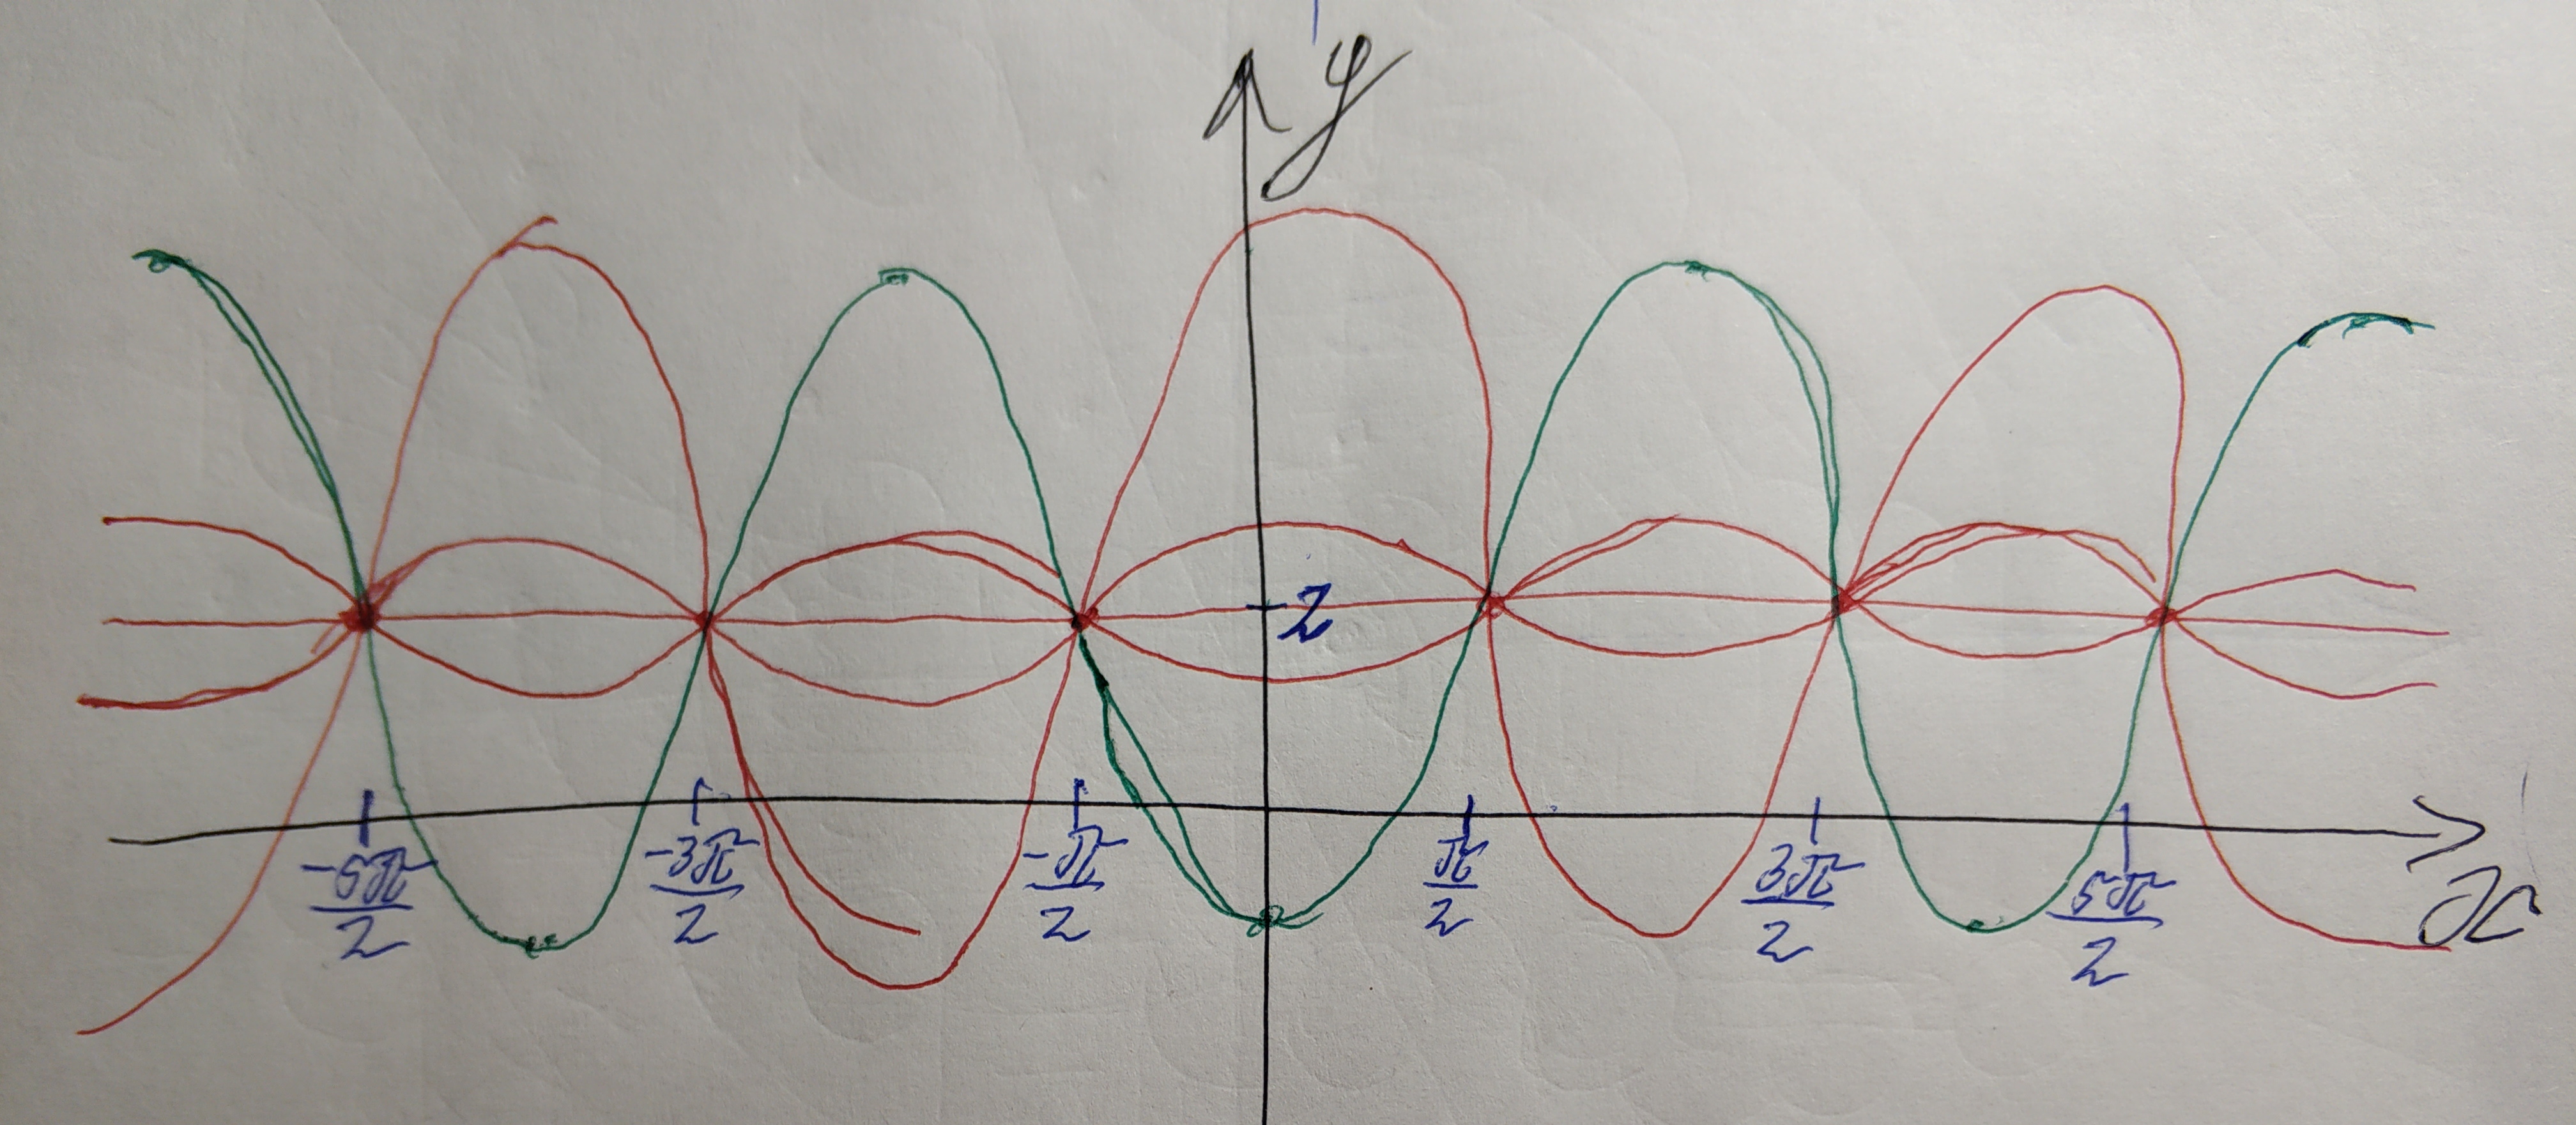 y
2
-5π/2
-3π/2
-π/2
π/2
3π/2
5π/2
x